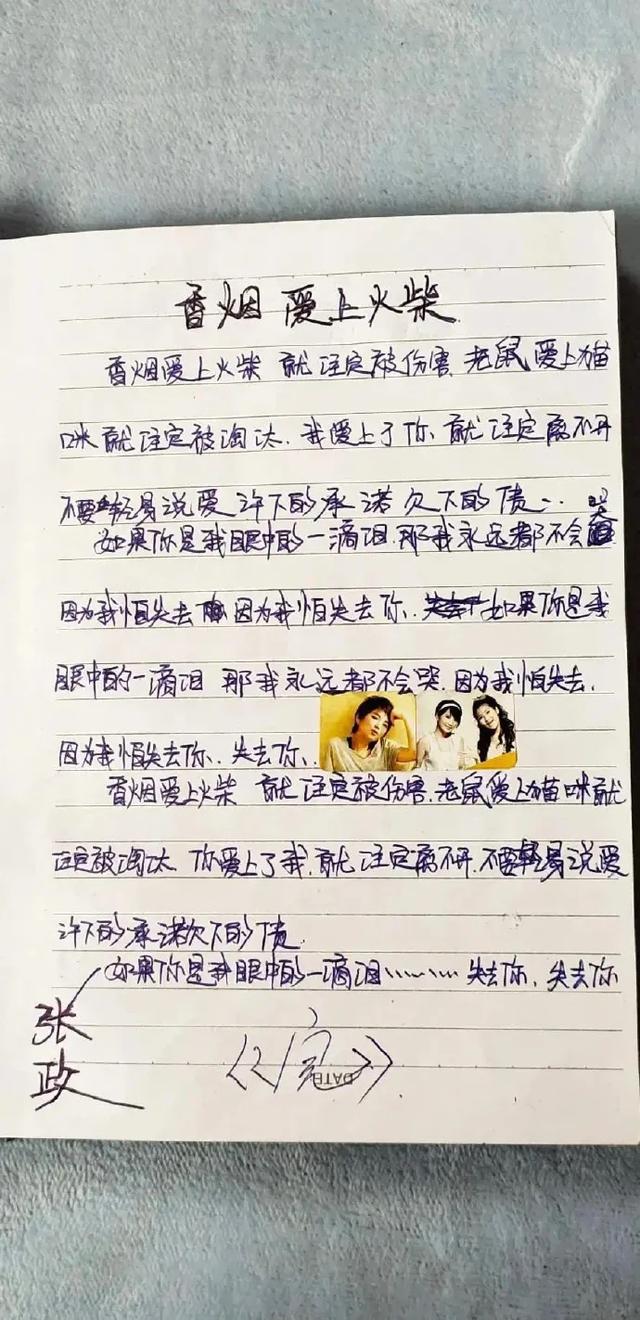 香烟 爱上火柴
香烟爱上火柴 就注定被伤害, 老鼠爱上猫
咪就注定被淘汰. 我爱上了你. 就注定离不开
不要轻易说爱 许下的承诺欠下的债… 哭
如果你是我眼中的一滴泪. 那我永远都不会
因为我怕失去 因为我怕失去你.. 如果你是我
眼中的一滴泪 那我永远都不会哭. 因为我怕失去.
因为我怕失去你.. 失去你..
香烟爱上火柴 就注定被伤害. 老鼠爱上猫咪就
注定被淘汰 你爱上了我. 就注定离不开. 不要轻易说爱
许下的承诺欠下的债.
如果你是我眼中的一滴泪………失去你. 失去你
张
政
DATE